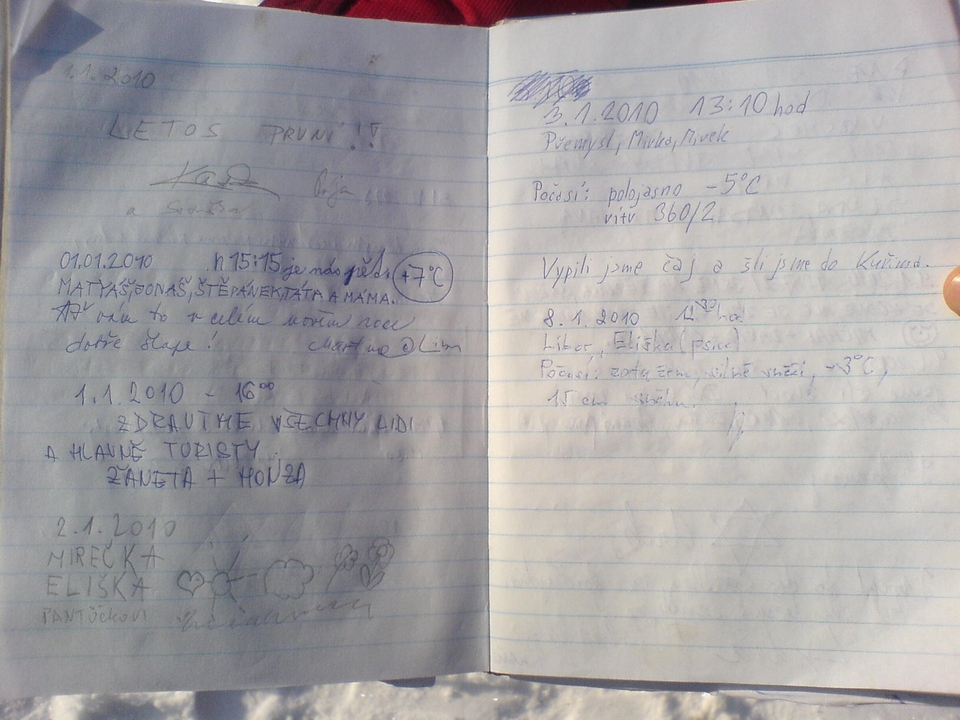 1.1.2010
LETOS PRVNÍ!!
a
01.01.2010 h 15:15 je nás pět. +7°C
MATYÁŠ, JONÁŠ, ŠTĚPÁNEK TÁTA A MÁMA.
Ať vám to v celém novém roce
dobře šlape!
1.1.2010 - 16⁰⁰
ZDRAVÍME VŠECHNY LIDI
A HLAVNĚ TURISTY
ŽANETA + HONZA
2.1.2010
MIREČKA
ELIŠKA
PANTŮČKOVI
3.1.2010 13:10 hod
Přemysl, Mirka, Mirek
Počasí: polojasno -5°C
vítr 360/2
Vypili jsme čaj a šli jsme do Kuřimi.
8.1.2010 hod
Libor, Eliška (psice)
Počasí: zataženo, silně sněží, -3°C,
15 cm sněhu.